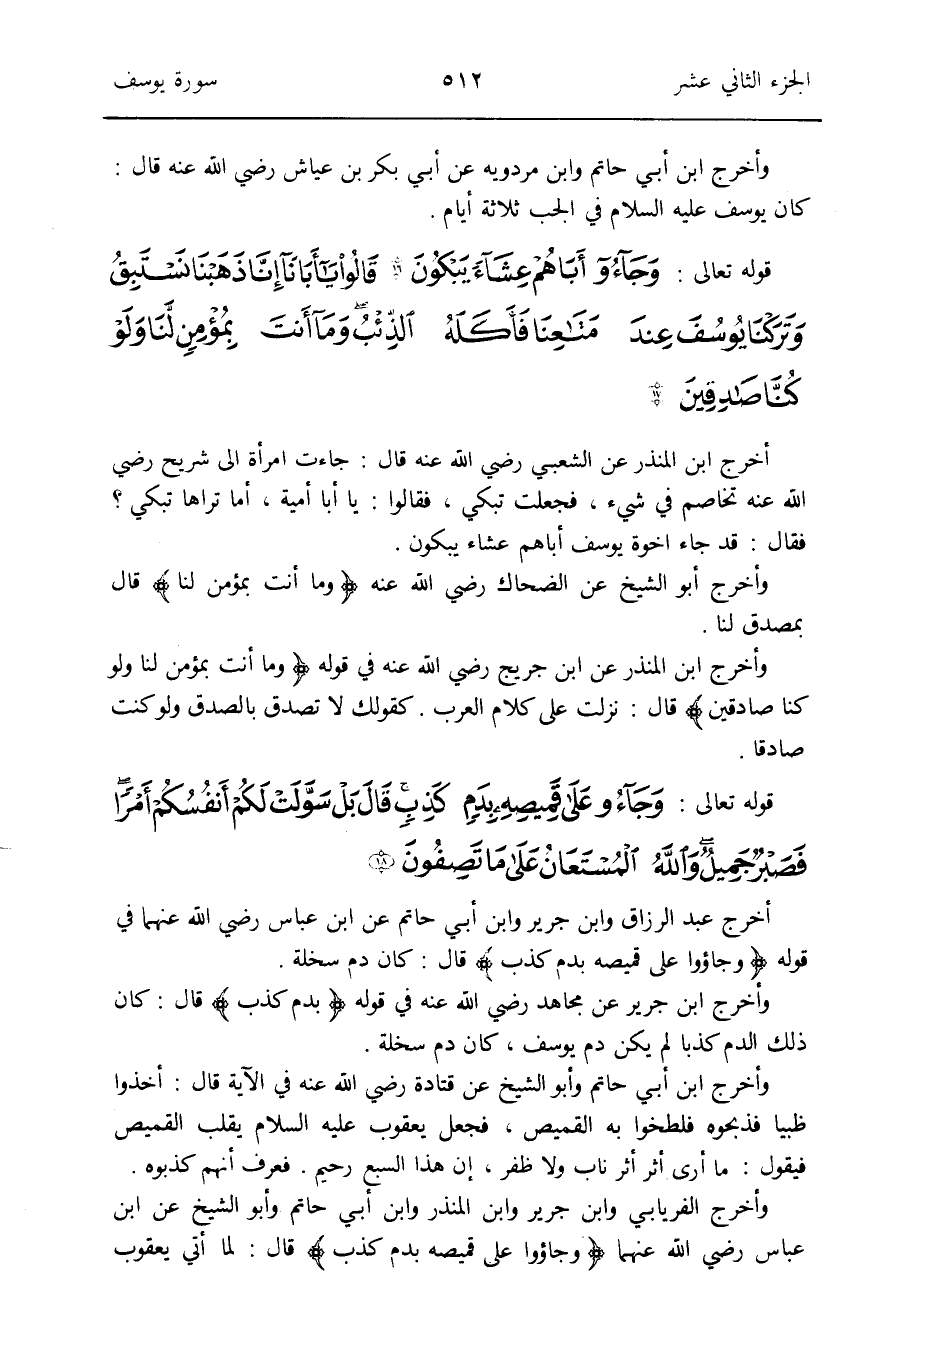 الجزء الثاني عشر ٥١٢ سورة يوسف
وأخرج ابن أبي حاتم وابن مردويه عن أبي بكر بن عياش رضي الله عنه قال :
كان يوسف عليه السلام في الجب ثلاثة أيام .
قوله تعالى : وَجَآءُوٓ أَبَاهُمْ عِشَآءً يَبْكُونَ ۝١٦ قَالُوا۟ يَٰٓأَبَانَآ إِنَّا ذَهَبْنَا نَسْتَبِقُ
وَتَرَكْنَا يُوسُفَ عِندَ مَتَٰعِنَا فَأَكَلَهُ ٱلذِّئْبُ ۖ وَمَآ أَنتَ بِمُؤْمِنٍ لَّنَا وَلَوْ
كُنَّا صَٰدِقِينَ ۝١٧
أخرج ابن المنذر عن الشعبي رضي الله عنه قال : جاءت امرأة الى شريح رضي
الله عنه تخاصم في شيء ، فجعلت تبكي ، فقالوا : يا أبا أمية ، أما تراها تبكي ؟
فقال : قد جاء اخوة يوسف أباهم عشاء يبكون .
وأخرج أبو الشيخ عن الضحاك رضي الله عنه ﴿ وما أنت بمؤمن لنا ﴾ قال
بمصدق لنا .
وأخرج ابن المنذر عن ابن جريج رضي الله عنه في قوله ﴿ وما أنت بمؤمن لنا ولو
كنا صادقين ﴾ قال : نزلت على كلام العرب . كقولك لا تصدق بالصدق ولو كنت
صادقا .
قوله تعالى : وَجَآءُو عَلَىٰ قَمِيصِهِۦ بِدَمٍ كَذِبٍ ۚ قَالَ بَلْ سَوَّلَتْ لَكُمْ أَنفُسُكُمْ أَمْرًا ۖ
فَصَبْرٌ جَمِيلٌ ۖ وَٱللَّهُ ٱلْمُسْتَعَانُ عَلَىٰ مَا تَصِفُونَ ۝١٨
أخرج عبد الرزاق وابن جرير وابن أبي حاتم عن ابن عباس رضي الله عنهما في
قوله ﴿ وجاؤوا على قميصه بدم كذب ﴾ قال : كان دم سخلة .
وأخرج ابن جرير عن مجاهد رضي الله عنه في قوله ﴿ بدم كذب ﴾ قال : كان
ذلك الدم كذبا لم يكن دم يوسف ، كان دم سخلة .
وأخرج ابن أبي حاتم وأبو الشيخ عن قتادة رضي الله عنه في الآية قال : أخذوا
ظبيا فذبحوه فلطخوا به القميص ، فجعل يعقوب عليه السلام يقلب القميص
فيقول : ما أرى أثر أثر ناب ولا ظفر ، إن هذا السبع رحيم . فعرف أنهم كذبوه .
وأخرج الفريابي وابن جرير وابن المنذر وابن أبي حاتم وأبو الشيخ عن ابن
عباس رضي الله عنهما ﴿ وجاؤوا على قميصه بدم كذب ﴾ قال : لما أتي يعقوب